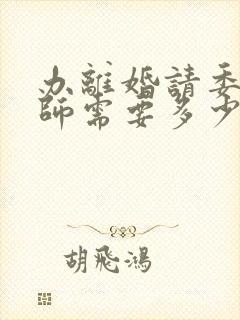 办離婚請委
師需要多少
胡飛鴻